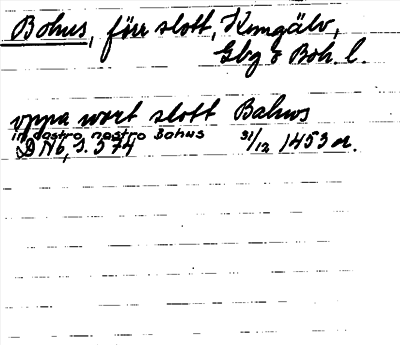 Bohus, förr slott, Kungälv,
Gbg o Boh. l.
vppa wort slott Bahws
in castro nostro Bahus
DN 6, s. 574 31/12 1453 or.